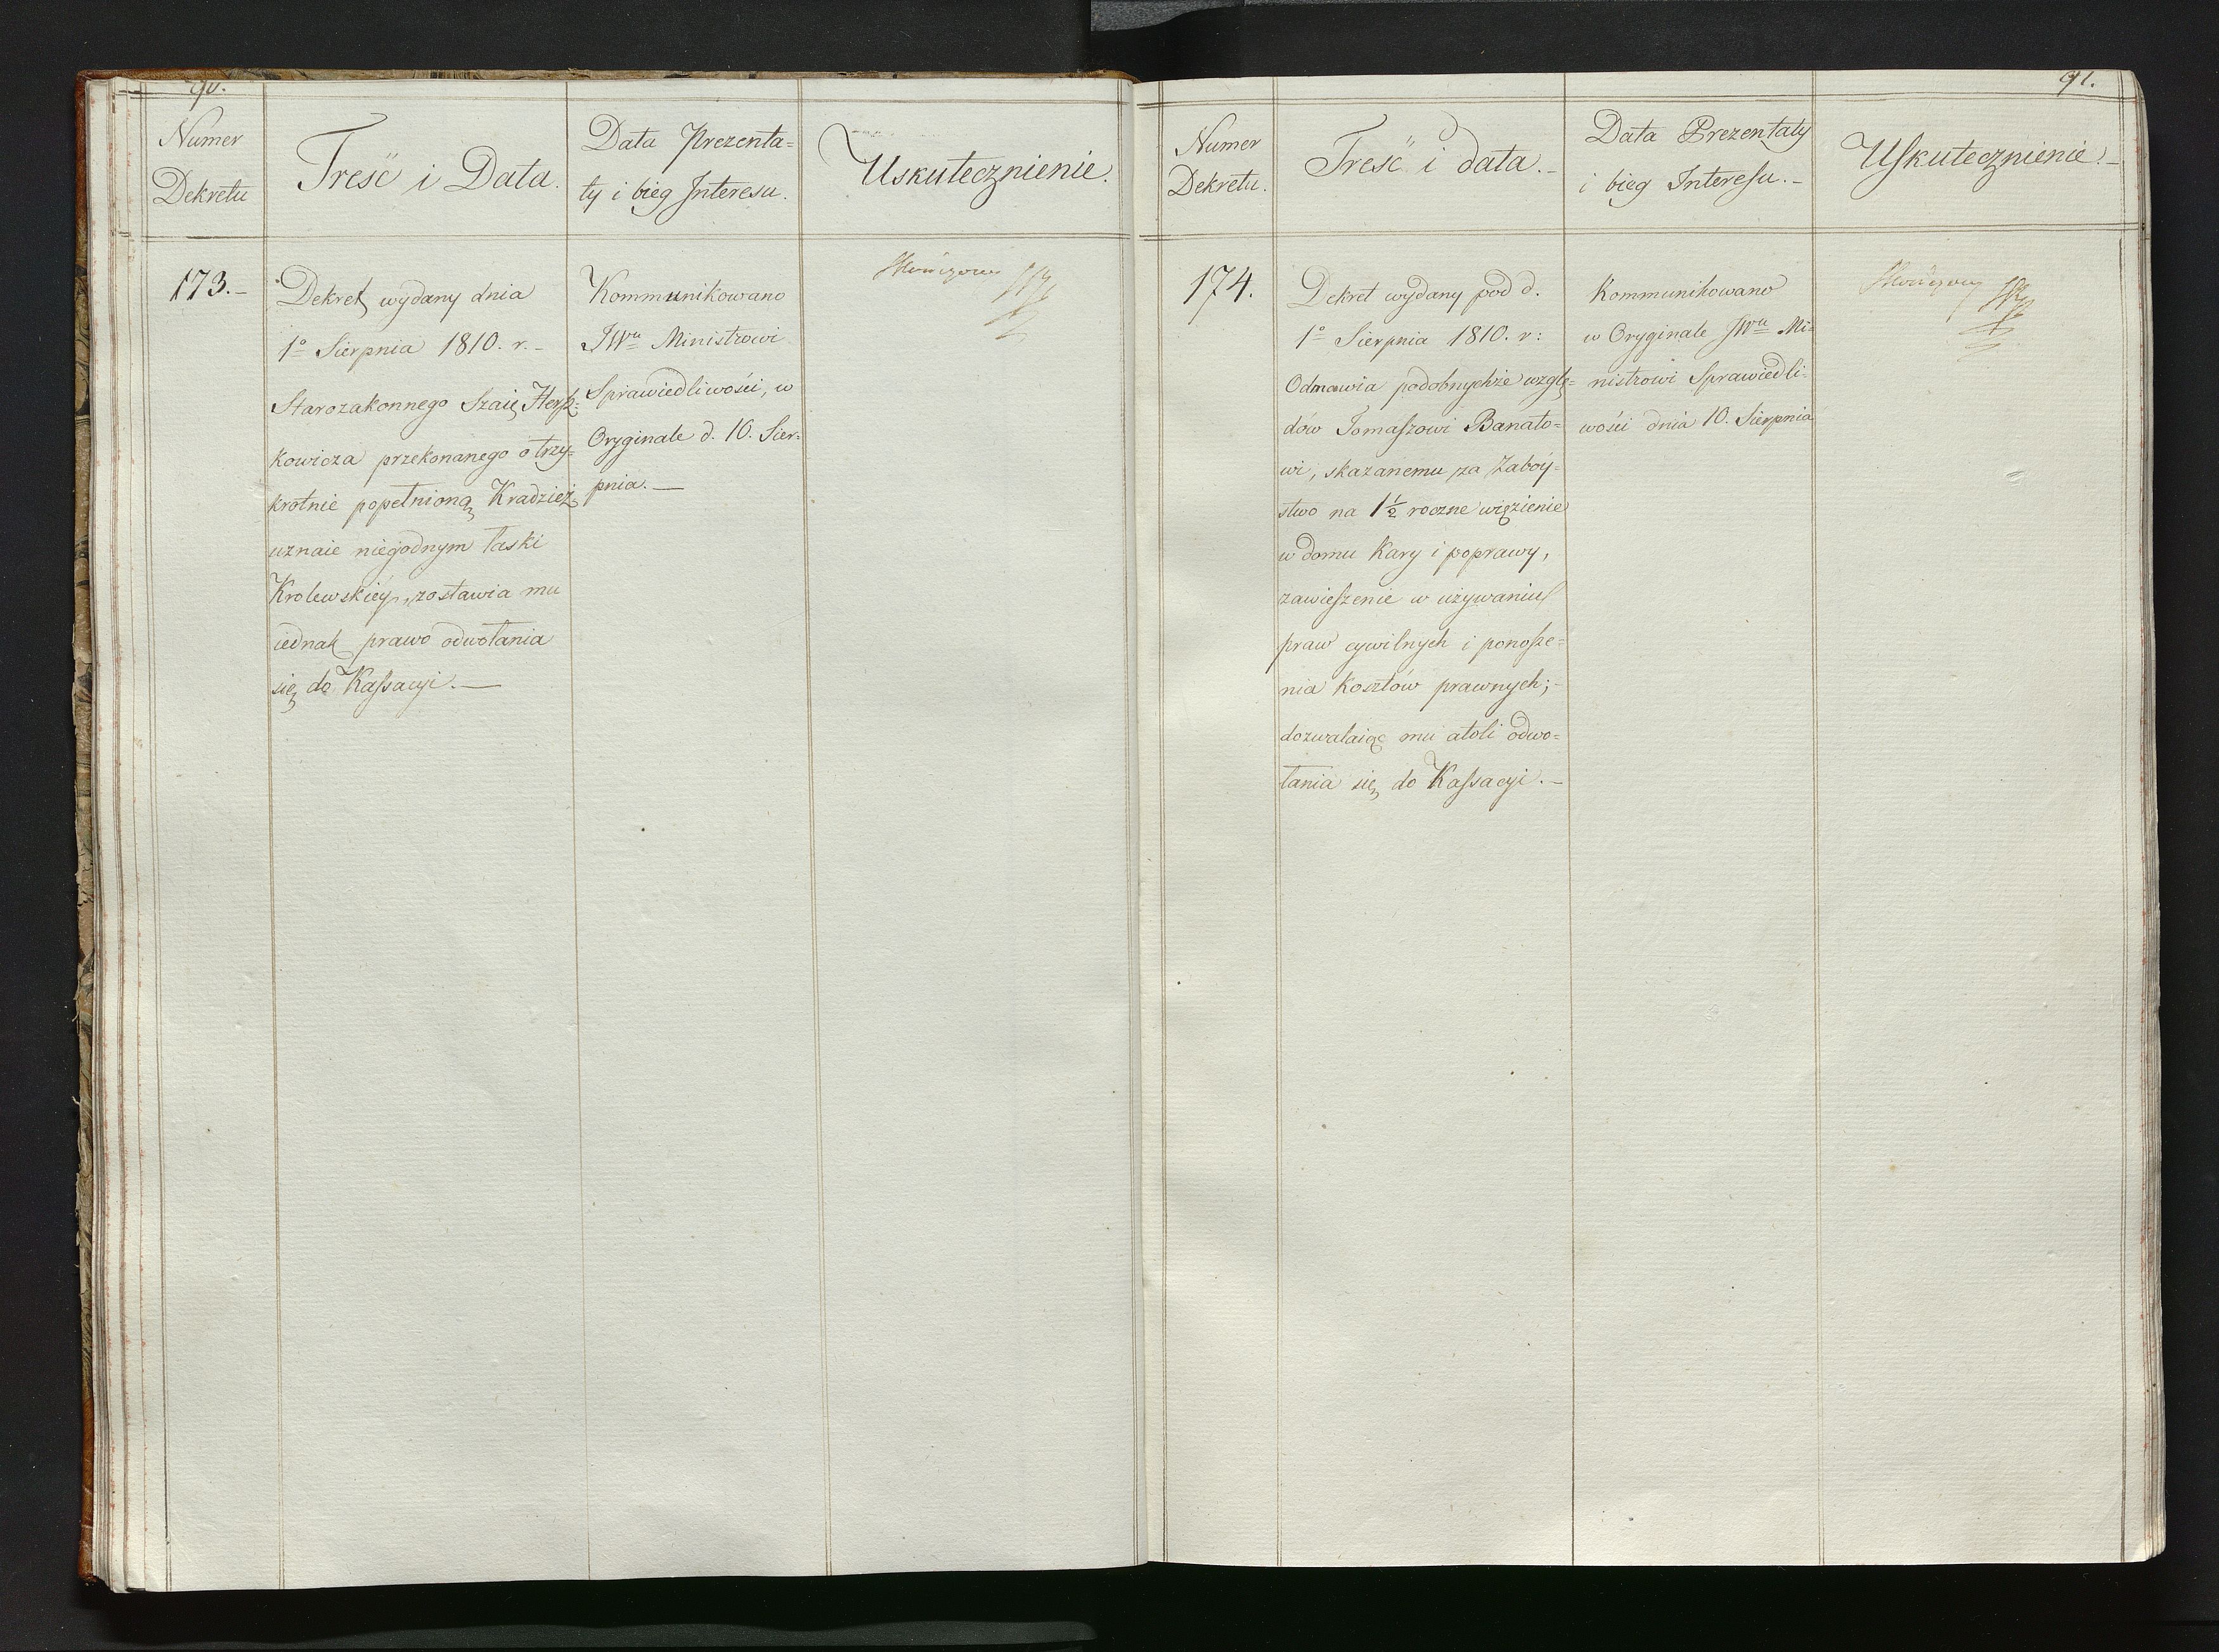 90.
Numer
Dekretu
Treść i Data.
Data Prezenta=
ty i bieg Interesu.
Uskutecznienie.
173.–
Dekret wydany dnia
1º Sierpnia 1810. r.–
Starozakonnego Szaię Hersz=
kowicza przekonanego o trzy=
krotnie popełnioną Kradzież
uznaie niegodnym łaski
Krolewskiéy, zostawia mu
iednak prawo odwołania
się do Kassacyi.—
Kommunikowano
JWu Ministrowi
Sprawiedliwości, w
Oryginale d. 10. Sier=
pnia.—
Skończony
91.
Numer
Dekretu.
Treść i data.–
Data Prezentaty
i bieg Interesu.–
Uskutecznienie.–
174.
Dekret wydany pod d.
1º Sierpnia 1810. r:
Odmawia podobnychże wzglę=
dów Tomaszowi Banato=
wi, skazanemu za Zabóy=
stwo na 1½ roczne więzienie
w domu Kary i poprawy,
zawieszenie w używaniu
praw cywilnych i ponosze=
nia Kosztów prawnych;–
dozwalaiąc mu atoli odwo=
łania się do Kassacyi.–
Kommunikowano
w Oryginale JWu Mi=
nistrowi Sprawiedli=
wości dnia 10. Sierpnia
Skończony